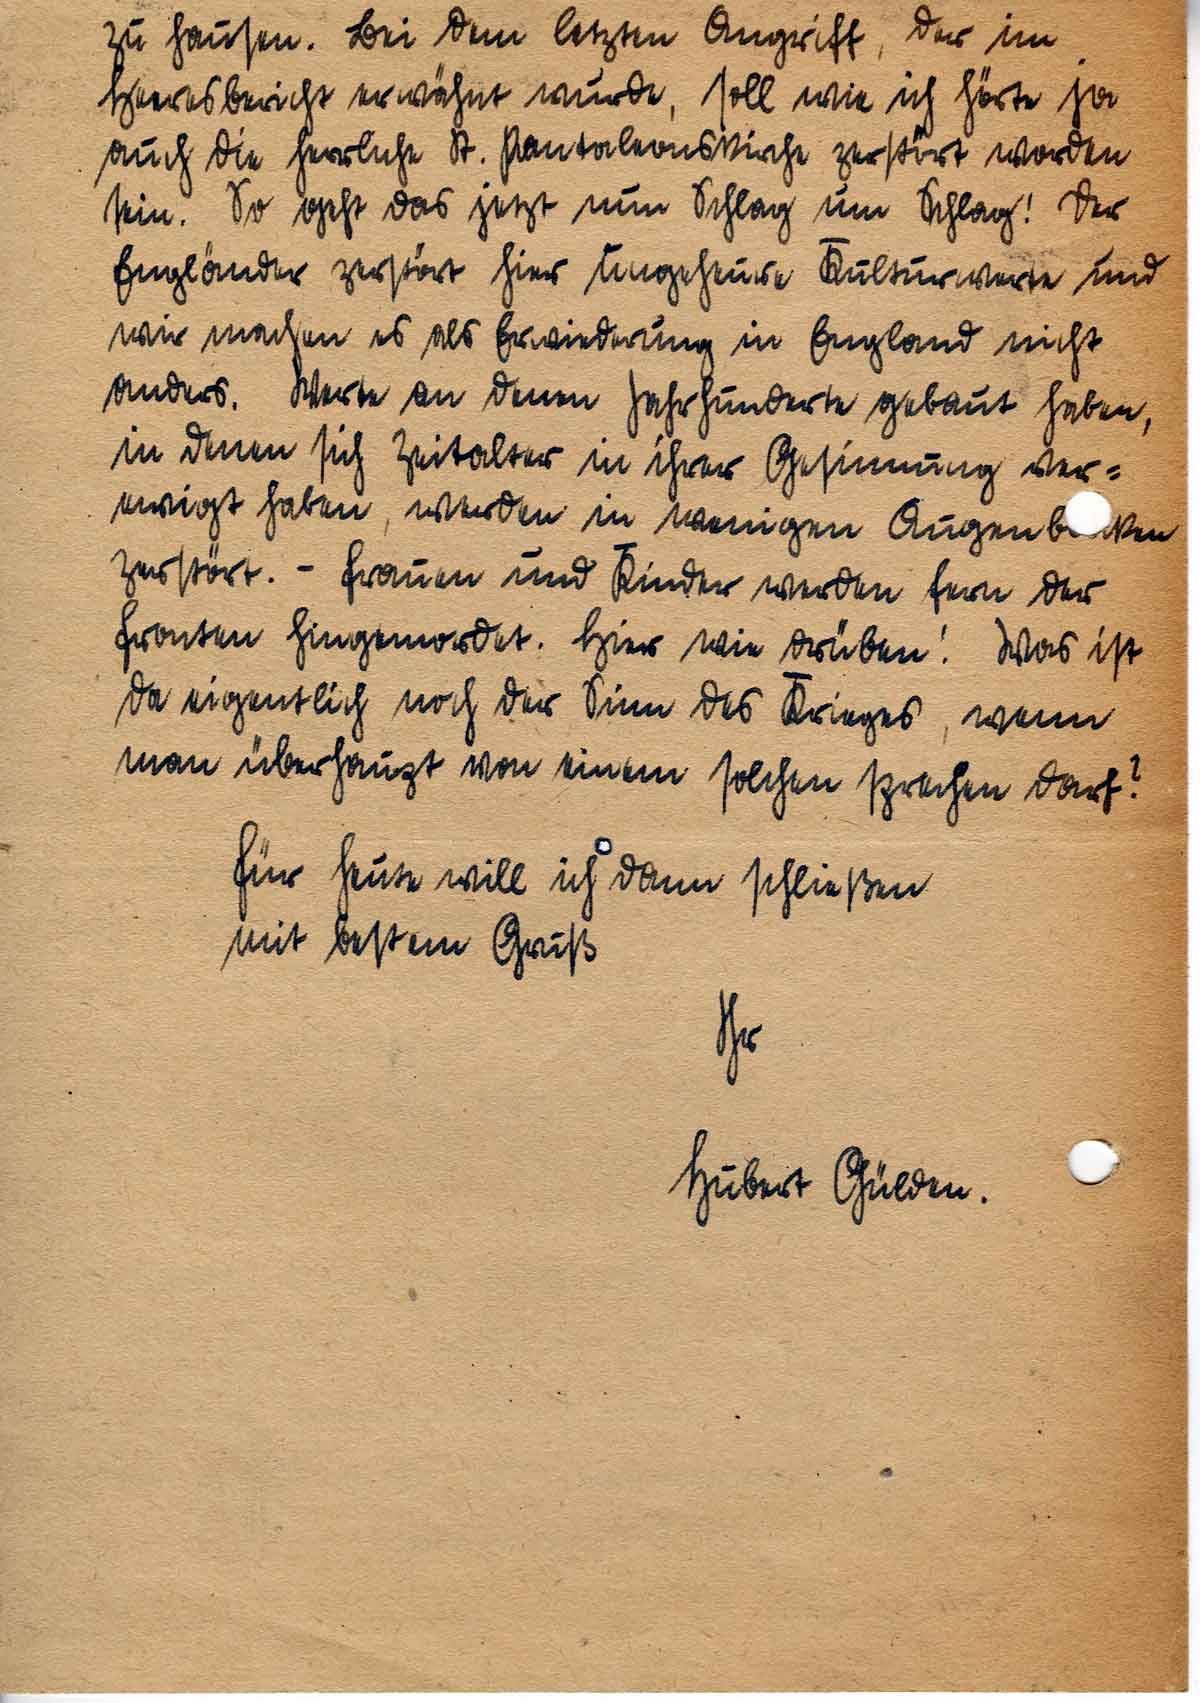 zu hausen. Bei dem letzten Angriff, der im
Heeresbericht erwähnt wurde, soll wie ich hörte ja
auch die herrliche St. Pantaleonskirche zerstört worden
sein. So geht das jetzt nun Schlag um Schlag! Der
Engländer zerstört hier ungeheure Kulturwerte und
wir machen es als Erwiederung in England nicht
anders. Werte an denen Jahrhunderte gebaut haben,
in denen sich Zeitalter in ihrer Gesinnung ver=
ewigt haben, werden in wenigen Augenblicken
zerstört. - Frauen und Kinder werden fern der
Fronten hingemordet. Hier wie drüben! Was ist
da eigentlich noch der Sinn des Krieges, wenn
man überhaupt von einem solchen sprechen darf?
Für heute will ich dann schließen
mit bestem Gruß
Ihr
Hubert Gülden.